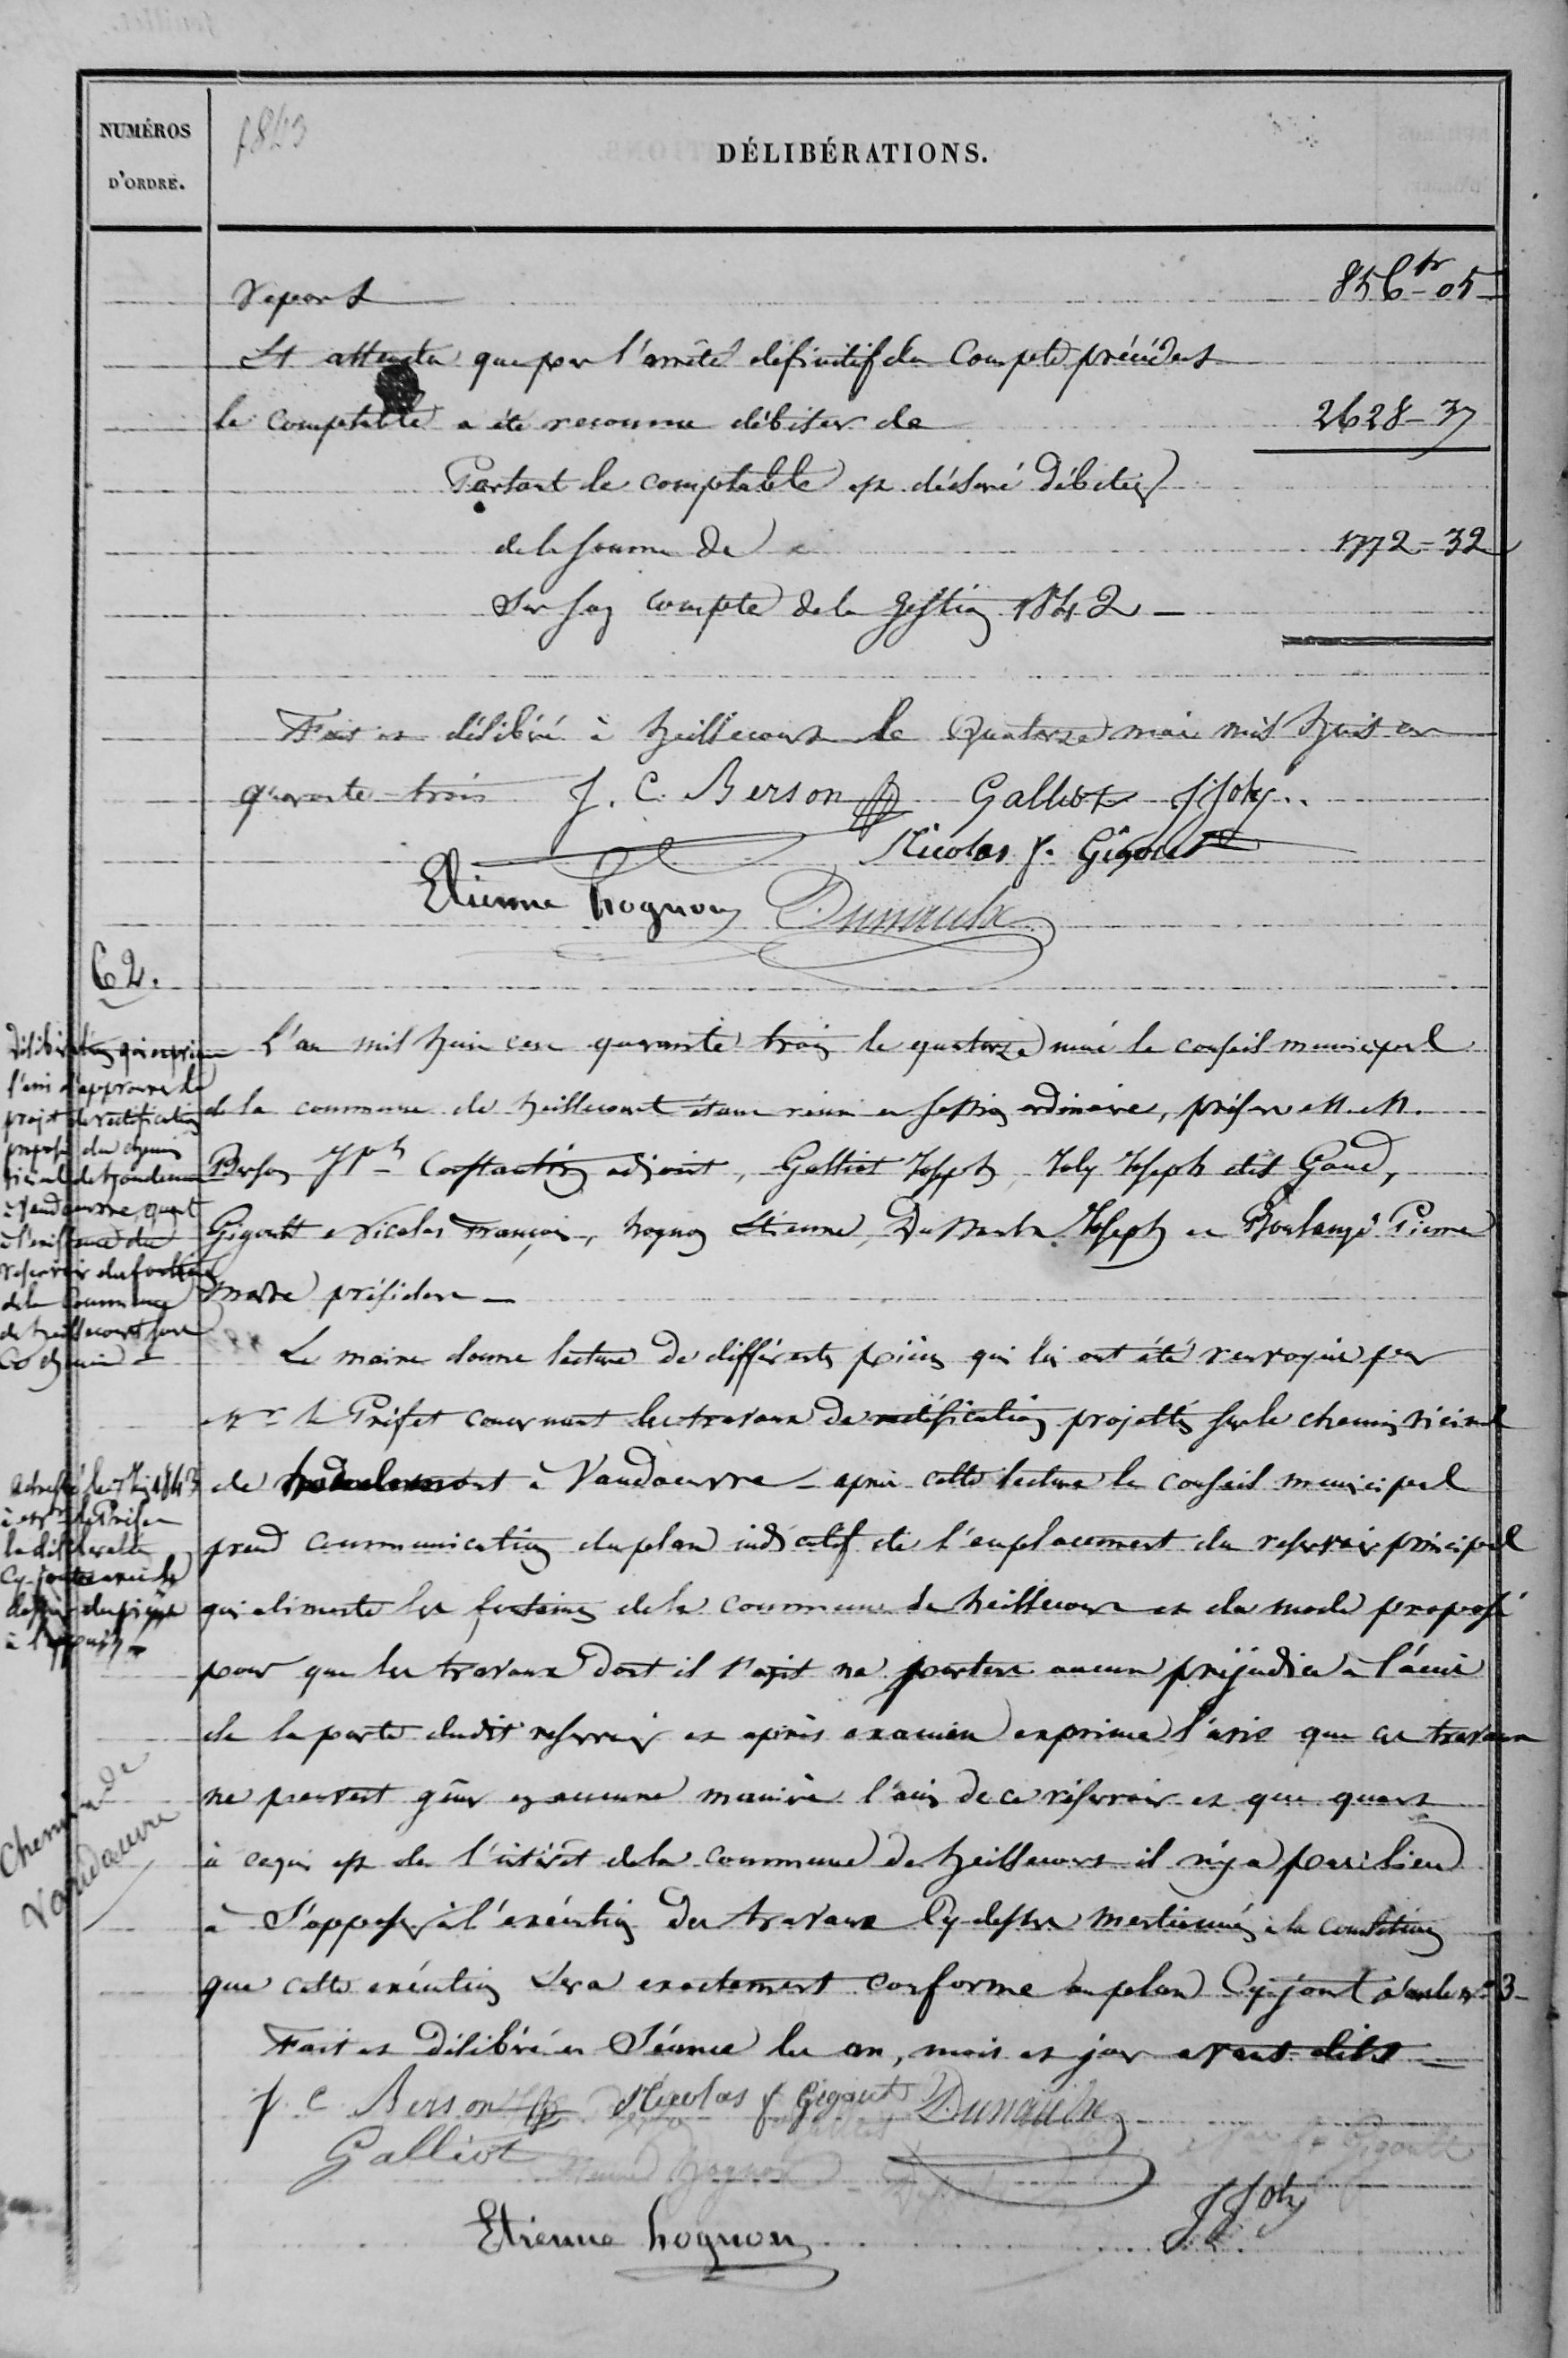 NUMÉROS
D'ORDRE.
1843
DÉLIBÉRATIONS.
Report 856fr 05
Et attendu que par l'arrêté définitif du Compte précédent
le comptable a été reconnu débiteur de 2628-37
Partant le comptable est déclaré Débiteur
de la somme de 1772-32
Sur son compte de la gestion 1842 —
Fait et délibéré à heillecourt le Quatorze mai mil huit cent
quarante-trois J. C. Berson Galliot J Joly
Nicolas f. Gigout
Etienne hognon Dumaulx
62.
Délibération qui exprime
l'avis d'approuver le
projet de rectification
proposé du chemin
vicinal de houdemont
à Vandoeuvre, quant
à l'existence du
reservoir des fontaines
de la Commune
de heillecourt sur
Ce chemin —
L'an mil huit cent quarante trois le quatorze mai le conseil municipal
de la commune de heillecourt étant réuni en session ordinaire, présens M.M.
Berson Jph Constantin adjoint, Galliot Joseph, Joly Joseph dit Gand,
Gigoutt Nicolas François, hognon Etienne, Joseph et Boulangé Pierre
maire président —
Le maire donne lecture de différentes pièces qui lui ont été renvoyées par
Mr le Préfet concernant les travaux de rectification projettés sur le chemin vicinal
de houdemont à Vandoeuvre — après cette lecture le conseil municipal
prend communication du plan indicatif de l'emplacement du reservoir principal
qui alimente les fontaines de la commune de heillecourt et du mode proposé
pour que les travaux dont il s'agit ne portent aucun préjudice à l'accès
de la porte dudit reservoir et après examen exprime l'avis que ces travaux
ne peuvent gêner en aucune manière l'accès de ce réservoir et que quant
à ce qui est de l'intérêt de la commune de heillecourt il n'y a pas lieu
à S'opposer à l'exécution des travaux Cy-dessus mentionnés à la condition
que cette exécution sera exactement conforme au plan Cy-joint sous le n° 3 —
Fait et Délibéré en Séance les an, mois et jour avant dits —
adressé le 1843
à Mr le Préfet
la délibération
Cy-contre avec le
dossier des pièces
à l'appui —
Chemin de
Vandoeuvre
J. C. Berson Nicolas f Gigout Dumaulx
Galliot
Etienne hognon
J Joly